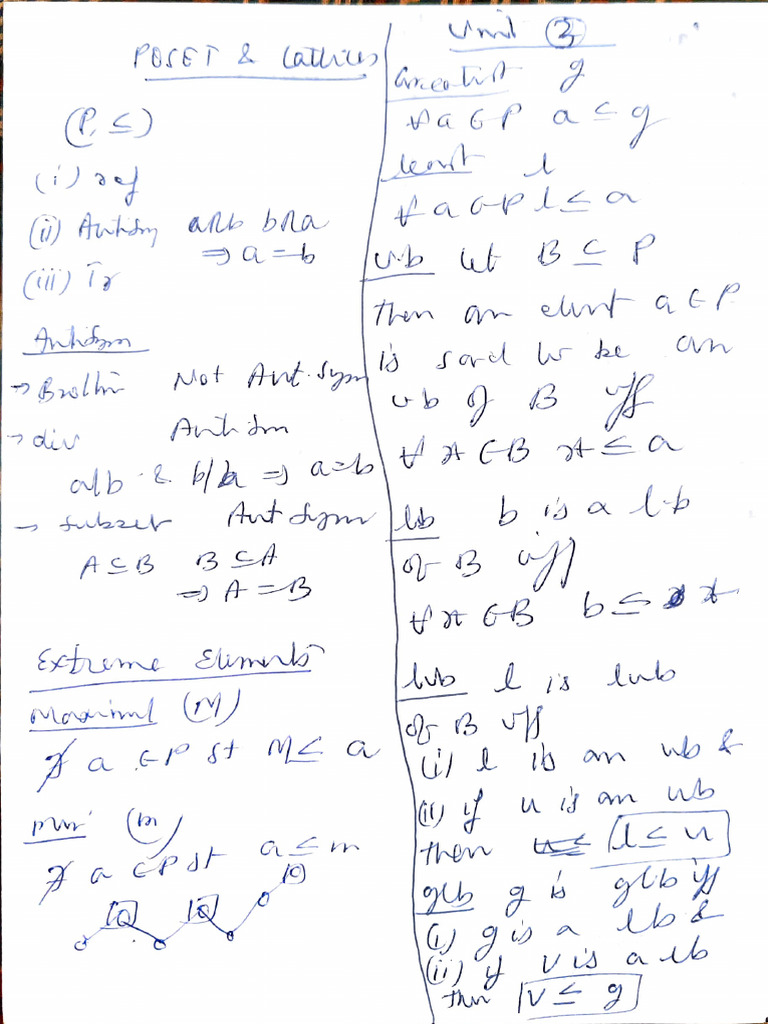 POSET & Lattices
(P, ≤)
(i) ref
(ii) Antisym aRb bRa
⇒ a = b
(iii) Tr
Antisym
→ Brother Not Ant. Sym
→ div Antisym
a/b & b/a ⇒ a=b
→ subset Ant Sym
A ⊆ B B ⊆ A
⇒ A = B
Extreme Elements
Maximal (M)
∄ a ∈ P st M ≤ a
min (m)
∄ a ∈ P st a ≤ m
Unit
Greatest g
∀ a ∈ P a ≤ g
least l
∀ a ∈ P l ≤ a
u.b let B ⊆ P
then an elent a ∈ P
is said to be an
ub of B iff
∀ x ∈ B x ≤ a
lb b is a l.b
of B iff
∀ x ∈ B b ≤ x
lub l is lub
of B iff
(i) l is an ub &
(ii) if u is an ub
then l ≤ u
glb g is glb iff
(i) g is a lb &
(ii) if v is a lb
then v ≤ g